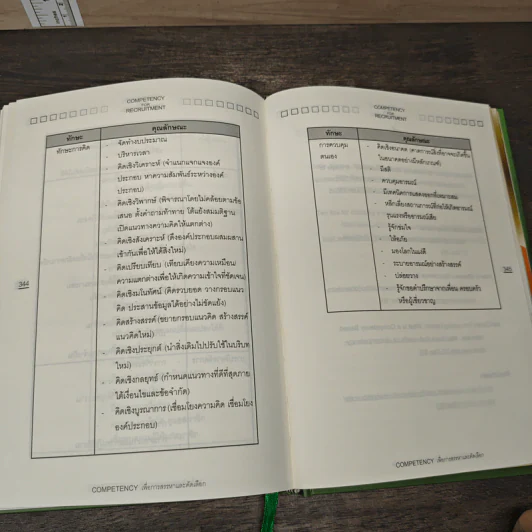 COMPETENCY
FOR
RECRUITMENT
ทักษะ
คุณลักษณะ
ทักษะการคิด
- จัดทำงบประมาณ
- บริหารเวลา
- คิดเชิงวิเคราะห์ (จำแนกแจกแจงองค์
ประกอบ หาความสัมพันธ์ระหว่างองค์
ประกอบ)
- คิดเชิงวิพากษ์ (พิจารณาโดยไม่คล้อยตามข้อ
เสนอ ตั้งคำถามท้าทาย โต้แย้งสมมติฐาน
เปิดแนวทางความคิดให้แตกต่าง)
- คิดเชิงสังเคราะห์ (ดึงองค์ประกอบผสมผสาน
เข้ากันเพื่อให้ได้สิ่งใหม่)
- คิดเปรียบเทียบ (เทียบเคียงความเหมือน/
ความแตกต่างเพื่อให้เกิดความเข้าใจที่ชัดเจน)
- คิดเชิงมโนทัศน์ (คิดรวบยอด วางกรอบแนว
คิด ประสานข้อมูลได้อย่างไม่ขัดแย้ง)
- คิดสร้างสรรค์ (ขยายกรอบแนวคิด สร้างสรรค์
แนวคิดใหม่)
- คิดเชิงประยุกต์ (นำสิ่งเดิมไปปรับใช้ในบริบท
ใหม่)
- คิดเชิงกลยุทธ์ (กำหนดแนวทางที่ดีที่สุดภาย
ใต้เงื่อนไขและข้อจำกัด)
- คิดเชิงบูรณาการ (เชื่อมโยงความคิด เชื่อมโยง
องค์ประกอบ)
344
COMPETENCY เพื่อการสรรหาและคัดเลือก
COMPETENCY
FOR
RECRUITMENT
ทักษะ
คุณลักษณะ
การควบคุม
ตนเอง
- คิดเชิงอนาคต (คาดการณ์สิ่งที่อาจจะเกิดขึ้น
ในอนาคตอย่างมีหลักเกณฑ์)
- มีสติ
- ควบคุมอารมณ์
- มีเทคนิคการแสดงออกที่เหมาะสม
- หลีกเลี่ยงสถานการณ์ที่ก่อให้เกิดอารมณ์
รุนแรงหรืออารมณ์เสีย
- รู้จักข่มใจ
- ให้อภัย
- มองโลกในแง่ดี
- ระบายอารมณ์อย่างสร้างสรรค์
- ปล่อยวาง
- รู้จักขอคำปรึกษาจากเพื่อน ครอบครัว
หรือผู้เชี่ยวชาญ
345
COMPETENCY เพื่อการสรรหาและคัดเลือก